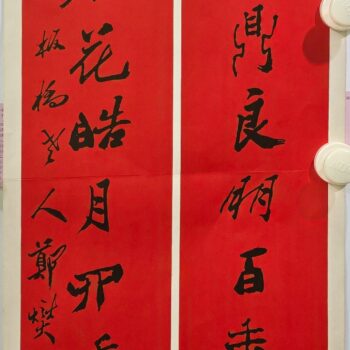 鼎良朋百
花皓月四
板橋老人鄭燮